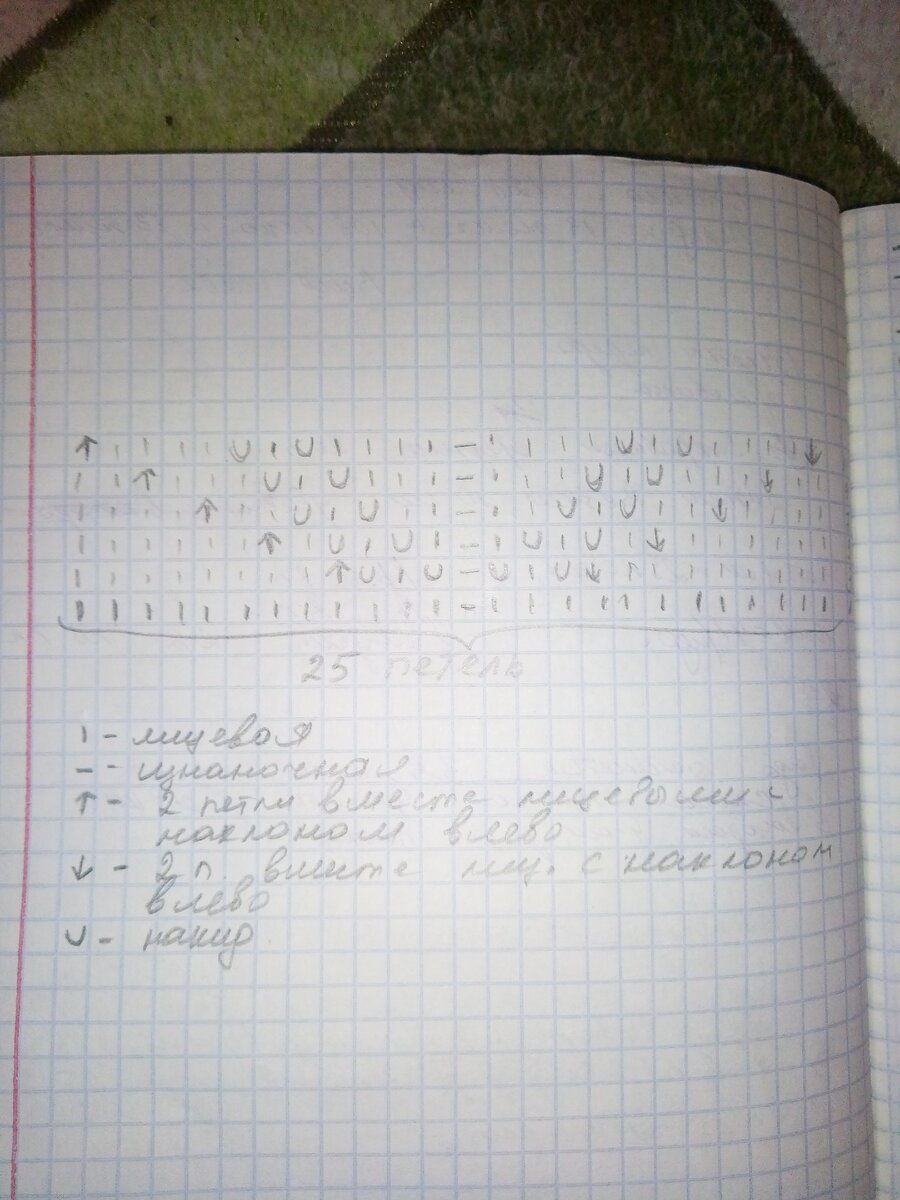 ↑ ı ı ı ı U ı U ı ı ı ı – ı ı ı ı U ı U ı ı ı ı ↓
ı ı ↑ ı ı ı U ı U ı ı ı – ı ı ı U ı U ı ı ı ↓ ı ı
ı ı ı ı ↑ ı ı U ı U ı ı – ı ı U ı U ı ı ↓ ı ı ı ı
ı ı ı ı ı ı ↑ ı U ı U ı – ı U ı U ı ↓ ı ı ı ı ı ı
ı ı ı ı ı ı ı ı ↑ U ı U – U ı U ↓ ı ı ı ı ı ı ı ı
ı ı ı ı ı ı ı ı ı ı ı ı – ı ı ı ı ı ı ı ı ı ı ı ı
25 петель
ı - лицевая
– - изнаночная
↑ - 2 петли вместе лицевыми с
наклоном влево
↓ - 2 п. вместе лиц. с наклоном
влево
U - накид